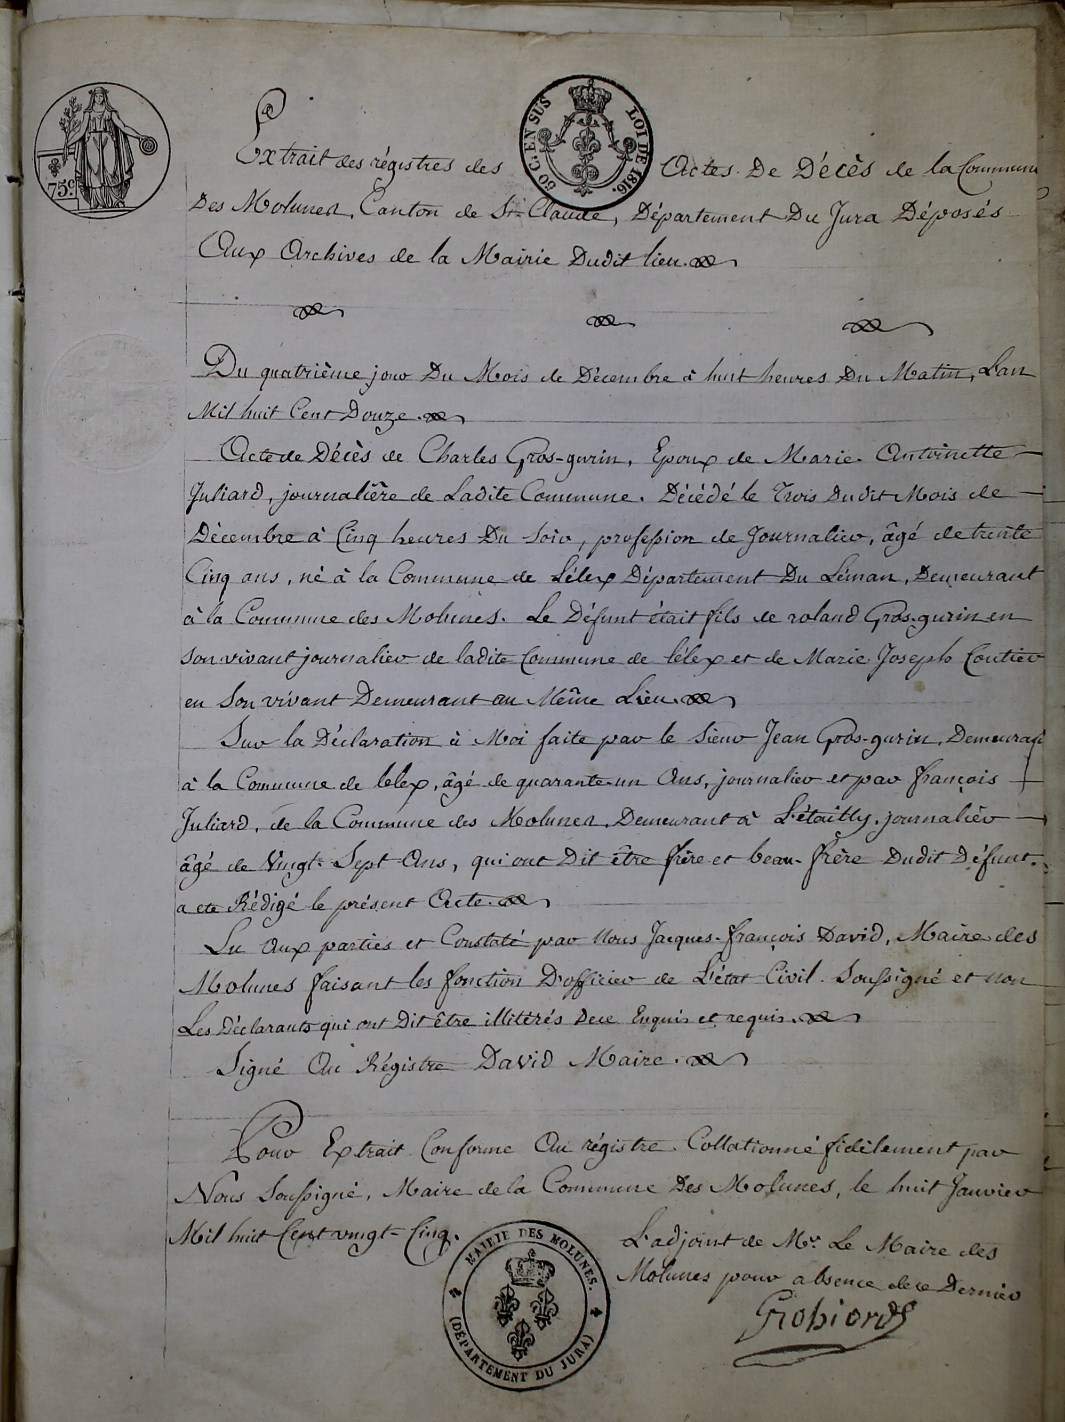 75c
50 C. EN SUS LOI DE 1816.
Extrait des régistres des Actes De Décès de la Commune
Des Molunes, Canton de St Claude, Département Du Jura Déposés
Aux Archives de la Mairie Dudit lieu.
Du quatrième jour Du Mois de Décembre à huit heures Du Matin, L'an
Mil huit Cent Douze.
Acte de Décès de Charles Gros-gurin, Epoux de Marie Antoinette
Juliard, journalière de Ladite Commune. Décédé le Trois Dudit Mois de
Décembre à Cinq heures Du Soir, profession de Journalier, âgé de trente
Cinq ans, né à la Commune de Lélex Département Du Léman, Demeurant
à la Commune des Molunes. Le Défunt était fils de roland Gros-gurin en
Son vivant journalier de ladite Commune de lélex et de Marie Joseph Coutier
en Son vivant Demeurant au Même Lieu.
Sur la Déclaration à Moi faite par le Sieur Jean Gros-gurin, Demeurant
à la Commune de lelex, âgé de quarante un Ans, journalier et par françois
Juliard, de la Commune des Molunes, Demeurant à L'étailly, journalier
âgé de Vingt Sept Ans, qui ont Dit être frère et beau-frère Dudit Défunt.
a ete Rédigé le présent Acte.
Lu Aux parties et Constaté par Nous Jacques-françois David, Maire des
Molunes faisant les fonction D'officier de L'état Civil Soussigné et non
Les Déclarants qui ont Dit être illitérés Dece Enquis et requis.
Signé Au Régistre David Maire.
Pour Extrait Conforme Au régistre Collationné fidèlement par
Nous Soussigné, Maire de la Commune Des Molunes, le huit Janvier
Mil huit Cent vingt-Cinq.
L'adjoint de Mr. Le Maire des
Molunes pour absence de ce Dernier
MAIRIE DES MOLUNES.
(DÉPARTEMENT DU JURA)